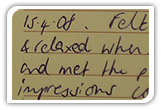 15.4.08. Felt
& relaxed when
and met the p
impressions